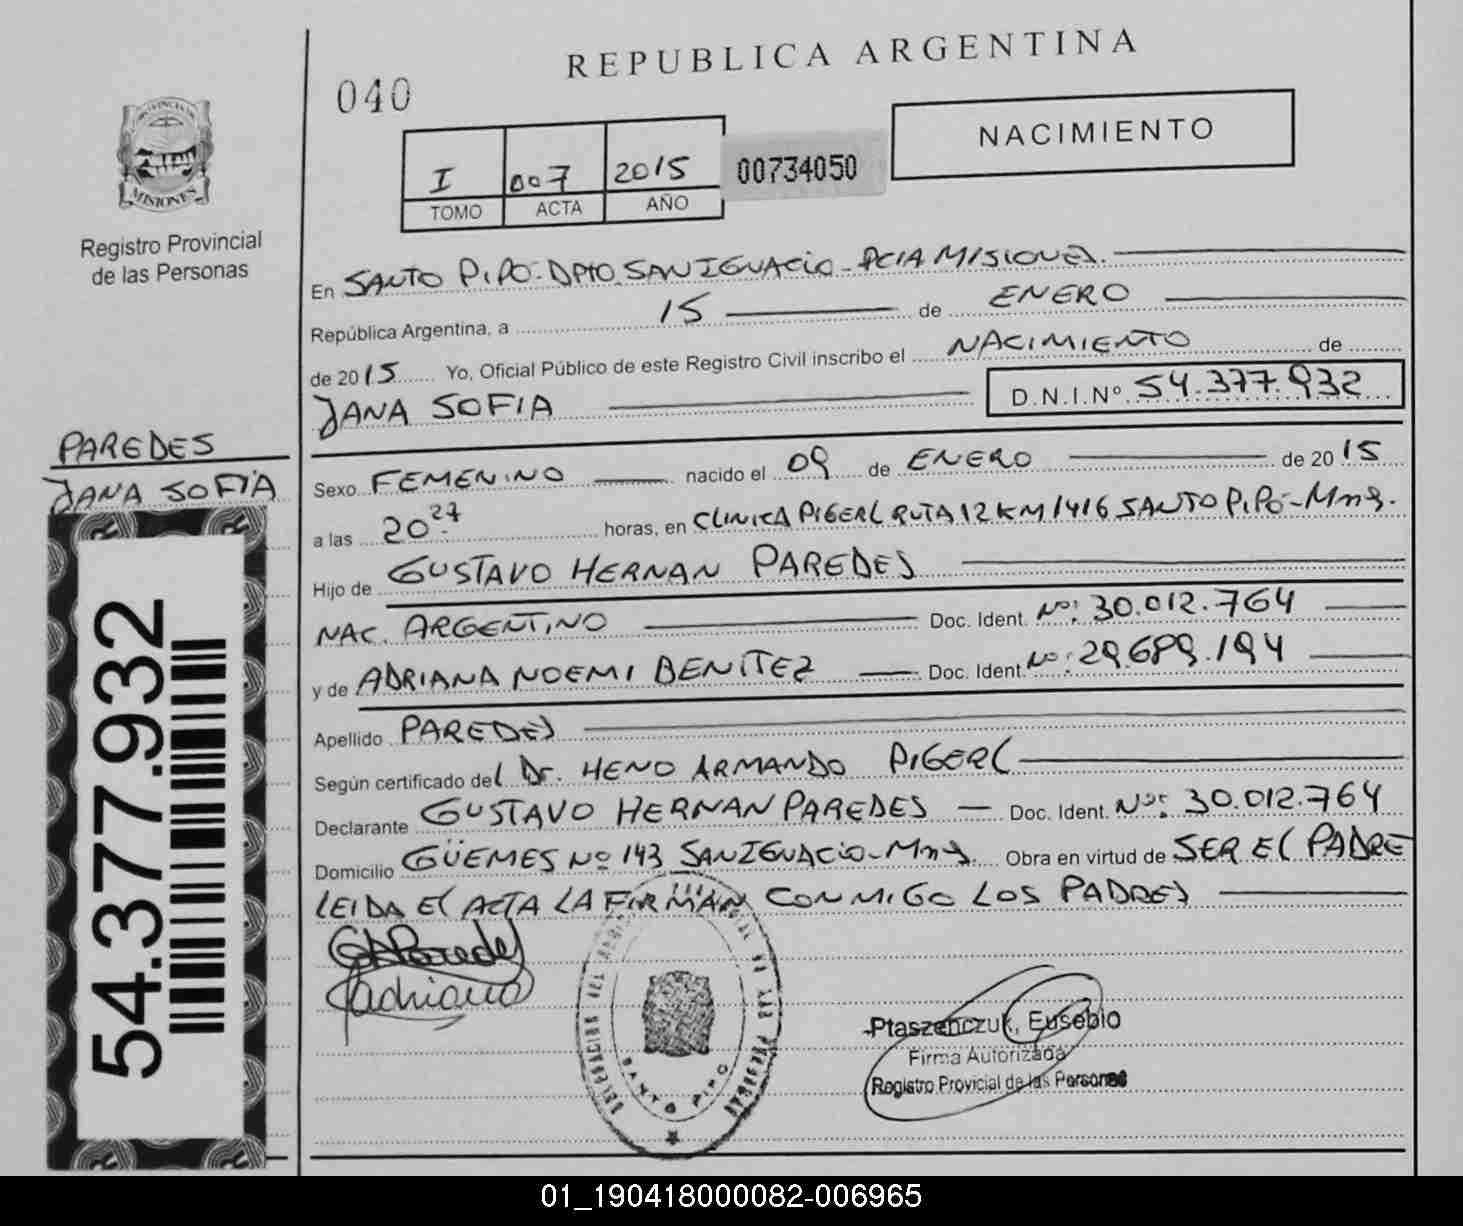 REPUBLICA ARGENTINA
040
NACIMIENTO
I 007 2015 00734050
TOMO ACTA AÑO
MISIONES
Registro Provincial
de las Personas
En SANTO PIPO-DPTO SAN IGNACIO-PCIA MISIONES.
República Argentina, a 15 de ENERO
de 2015 Yo, Oficial Público de este Registro Civil inscribo el NACIMIENTO de
JANA SOFIA D.N.I.Nº 54.377.932
PAREDES
JANA SOFIA
Sexo FEMENINO nacido el 09 de ENERO de 2015
a las 20 27 horas, en CLINICA PIGERL RUTA 12 KM 1416 SANTO PIPÓ-Mns.
Hijo de GUSTAVO HERNAN PAREDES
NAC. ARGENTINO Doc. Ident. Nº: 30.012.764
y de ADRIANA NOEMI BENITEZ Doc. Ident. Nº: 29.689.194
Apellido PAREDES
Según certificado del Dr. HENO ARMANDO PIGERL
Declarante GUSTAVO HERNAN PAREDES Doc. Ident. Nº: 30.012.764
Domicilio GÜEMES Nº 143 SAN IGNACIO-Mns. Obra en virtud de SER EL PADRE
LEIDA EL ACTA LA FIRMAN CONMIGO LOS PADRES
54.377.932
Paredes
Adriana
SANTO PIPO
Ptaszenczuk, Eusebio
Firma Autorizada
Registro Provicial de las Personas
01_190418000082-006965